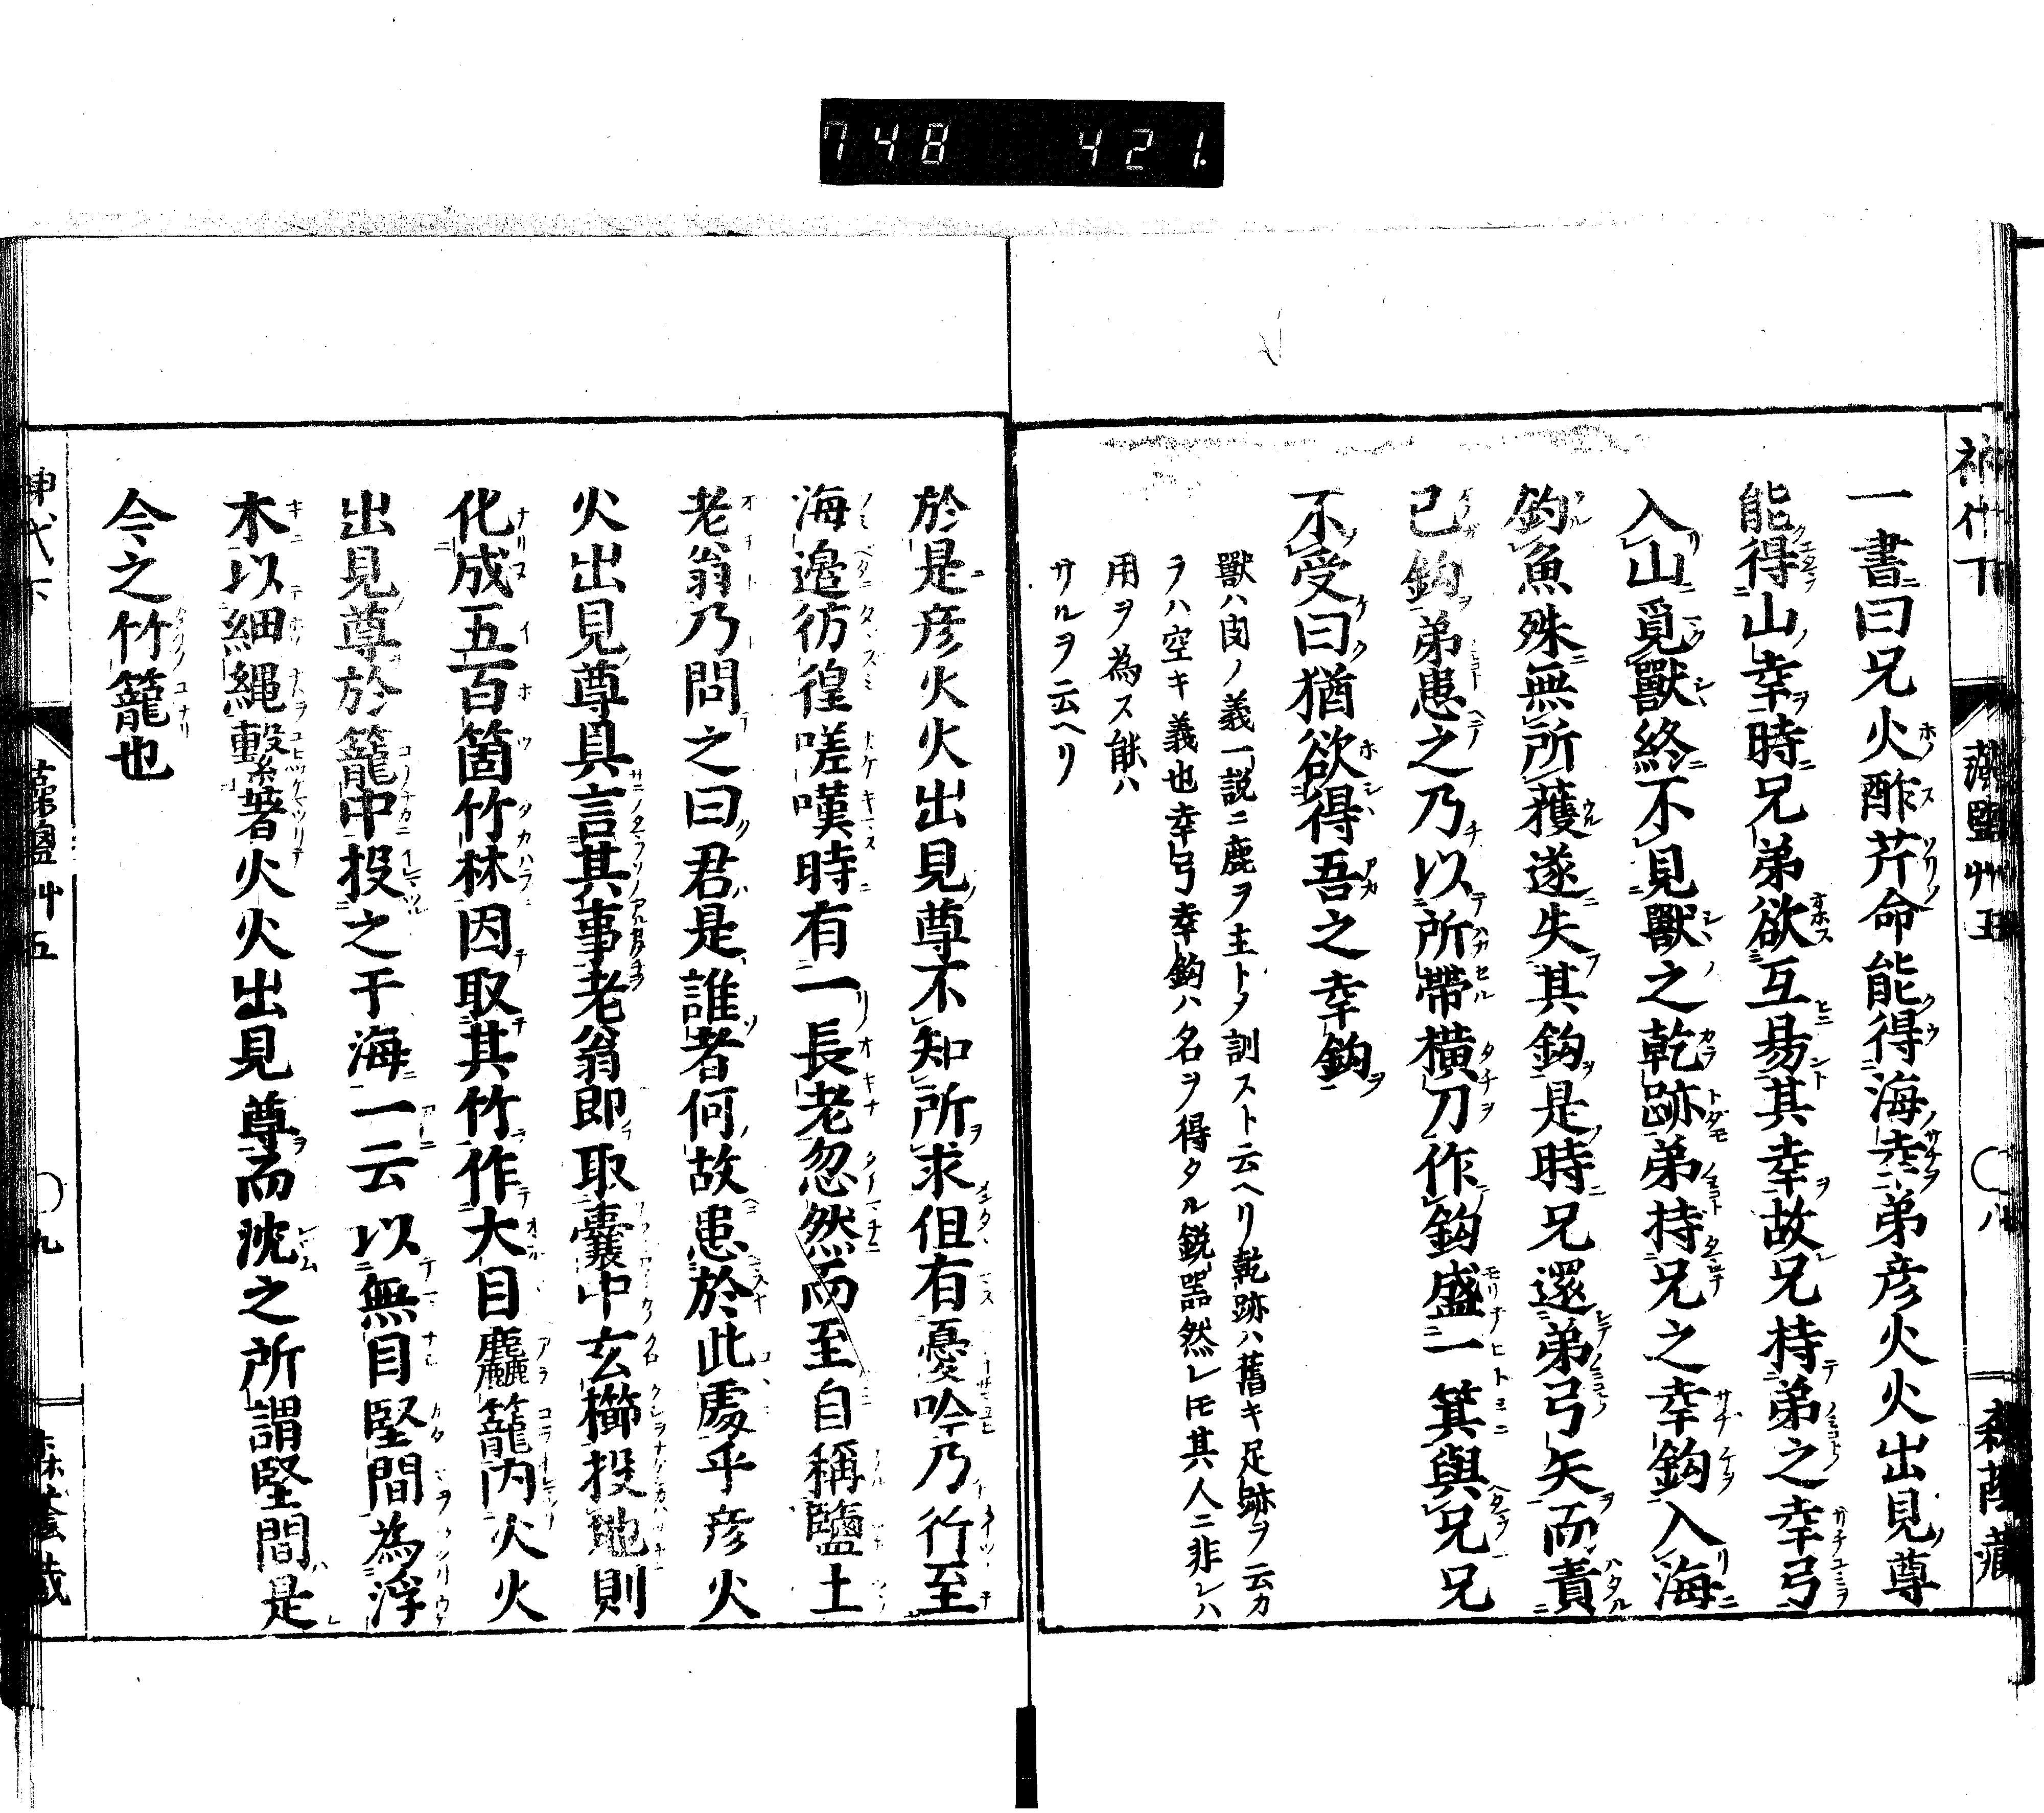 748 421.
神代下 藻鹽艸五 〇八 森蔭藏
一書曰兄火酢芹命能得海幸弟彦火火出見尊
能得山幸時兄弟欲互易其幸故兄持弟之幸弓
入山覓獸終不見獸之乾跡弟持兄之幸鈎入海
釣魚殊無所獲遂失其鈎是時兄還弟弓矢而責
已鈎弟患之乃以所帶横刀作鈎盛一箕與兄兄
不受曰猶欲得吾之幸鈎
獸ハ肉ノ義一説ニ鹿ヲ主トメ訓スト云ヘリ乾跡ハ舊キ足跡ヲ云カ
ラハ空キ義也幸弓幸鈎ハ名ヲ得タル鋭器然レ𪜈其人ニ非レハ
用ヲ為ス能ハ
サルヲ云ヘリ
於是彦火火出見尊不知所求但有憂吟乃行至
海邉彷徨嗟嘆時有一長老忽然而至自稱鹽土
老翁乃問之曰君是誰者何故患於此處乎彦火
火出見尊具言其事老翁即取囊中玄櫛投地則
化成五百箇竹林因取其竹作大目麤籠内火火
出見尊於籠中投之于海一云以無目堅間為浮
木以細縄繫著火火出見尊而沈之所謂堅間是
今之竹籠也
神代下 藻鹽艸五 〇九 森蔭藏